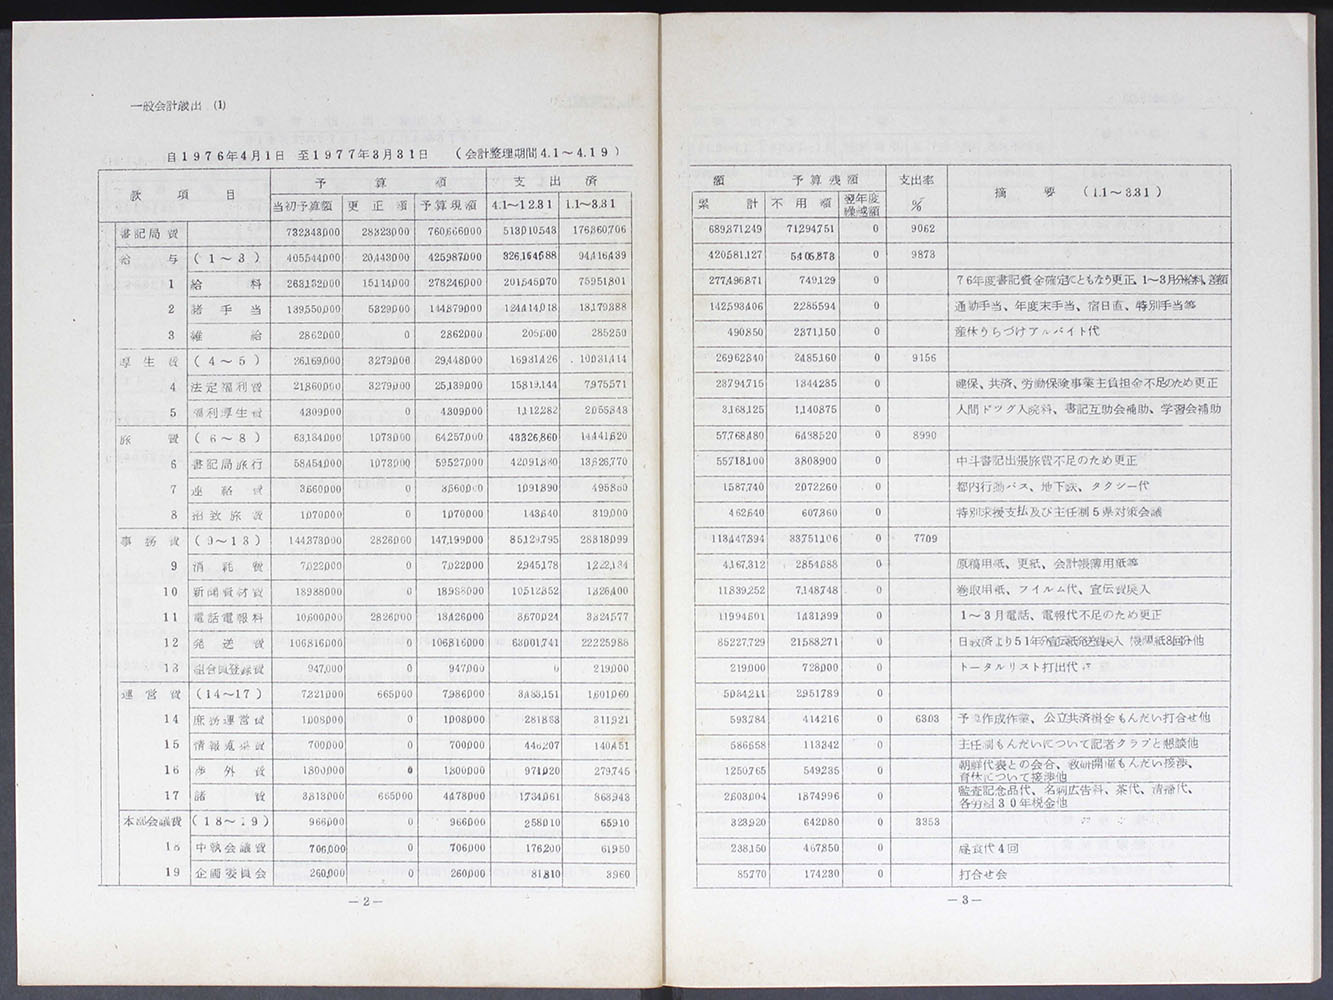 一般会計歳出 (1)
自1976年4月1日 至1977年3月31日 (会計整理期間4.1～4.19)
款 項 目 予 算 額 支 出 済
当初予算額 更 正 額 予算現額 4.1～12.31 1.1～3.31
書記局費 732,343,000 28,323,000 760,666,000 513,010,543 176,860,706
給 与 (1～3) 405,544,000 20,443,000 425,987,000 326,164,688 94,416,439
1 給 料 263,132,000 15,114,000 278,246,000 201,545,070 75,951,801
2 諸 手 当 139,550,000 5,329,000 144,879,000 124,414,018 18,179,388
3 雑 給 2,862,000 0 2,862,000 205,600 285,250
厚 生 費 (4～5) 26,169,000 3,279,000 29,448,000 16,931,426 10,031,414
4 法定福利費 21,860,000 3,279,000 25,139,000 15,819,144 7,975,571
5 福利厚生費 4,309,000 0 4,309,000 1,112,282 2,055,843
旅 費 (6～8) 63,184,000 1,073,000 64,257,000 43,326,860 14,441,620
6 書記局旅行 58,454,000 1,073,000 59,527,000 42,091,330 13,626,770
7 連 絡 費 3,660,000 0 3,660,000 1,091,890 495,850
8 招致旅費 1,070,000 0 1,070,000 143,640 319,000
事 務 費 (9～13) 144,373,000 2,826,000 147,199,000 85,129,795 28,318,099
9 消 耗 費 7,022,000 0 7,022,000 2,945,178 1,222,134
10 新聞資材費 18,988,000 0 18,988,000 10,512,852 1,326,400
11 電話電報料 10,600,000 2,826,000 13,426,000 8,670,024 3,324,577
12 発 送 費 106,816,000 0 106,816,000 63,001,741 22,225,988
13 組合員登録費 947,000 0 947,000 0 219,000
運 営 費 (14～17) 7,321,000 665,000 7,986,000 3,433,151 1,601,060
14 庶務運営費 1,008,000 0 1,008,000 281,863 311,921
15 情報蒐集費 700,000 0 700,000 446,207 140,451
16 渉 外 費 1,800,000 0 1,800,000 971,020 279,745
17 諸 費 3,813,000 665,000 4,478,000 1,734,061 868,943
本部会議費 (18～19) 966,000 0 966,000 258,010 65,910
18 中執会議費 706,000 0 706,000 176,200 61,950
19 企画委員会 260,000 0 260,000 81,810 3,960
—2—
額 予 算 残 額 支出率 摘 要 (1.1～3.31)
累 計 不 用 額 翌年度繰越額 %
689,871,249 71,294,751 0 90.62
420,581,127 5,405,873 0 98.73
277,496,871 749,129 0 76年度書記賃金確定にともなう更正、1～3月分給料、差額
142,593,406 2,285,594 0 通勤手当、年度末手当、宿日直、特別手当等
490,850 2,371,150 0 産休うらづけアルバイト代
26,962,840 2,485,160 0 91.56
23,794,715 1,344,285 0 健保、共済、労働保険事業主負担金不足のため更正
3,168,125 1,140,875 0 人間ドック入院料、書記互助会補助、学習会補助
57,768,480 6,488,520 0 89.90
55,718,100 3,808,900 0 中斗書記出張旅費不足のため更正
1,587,740 2,072,260 0 都内行動バス、地下鉄、タクシー代
462,640 607,360 0 特別求援支払及び主任制5県対策会議
113,447,894 33,751,106 0 77.09
4,167,312 2,854,688 0 原稿用紙、更紙、会計帳簿用紙等
11,839,252 7,148,748 0 巻取用紙、フイルム代、宣伝費戻入
11,994,601 1,431,399 0 1～3月電話、電報代不足のため更正
85,227,729 21,588,271 0
219,000 728,000 0 トータルリスト打出代
5,034,211 2,951,789
593,784 414,216 0 63.03 公立共済掛金もんだい打合せ他
586,658 113,342 0 主任制もんだいについて記者クラブと懇談他
1,250,765 549,235 0 朝鮮代表との会合、教研開催もんだい接渉、
育休について接渉他
2,603,004 1,874,996 0 監査記念品代、名刺広告料、茶代、清掃代、
各分担30年税金他
323,920 642,080 0 33.53
238,150 467,850 0 昼食代4回
85,770 174,230 0 打合せ会
—3—